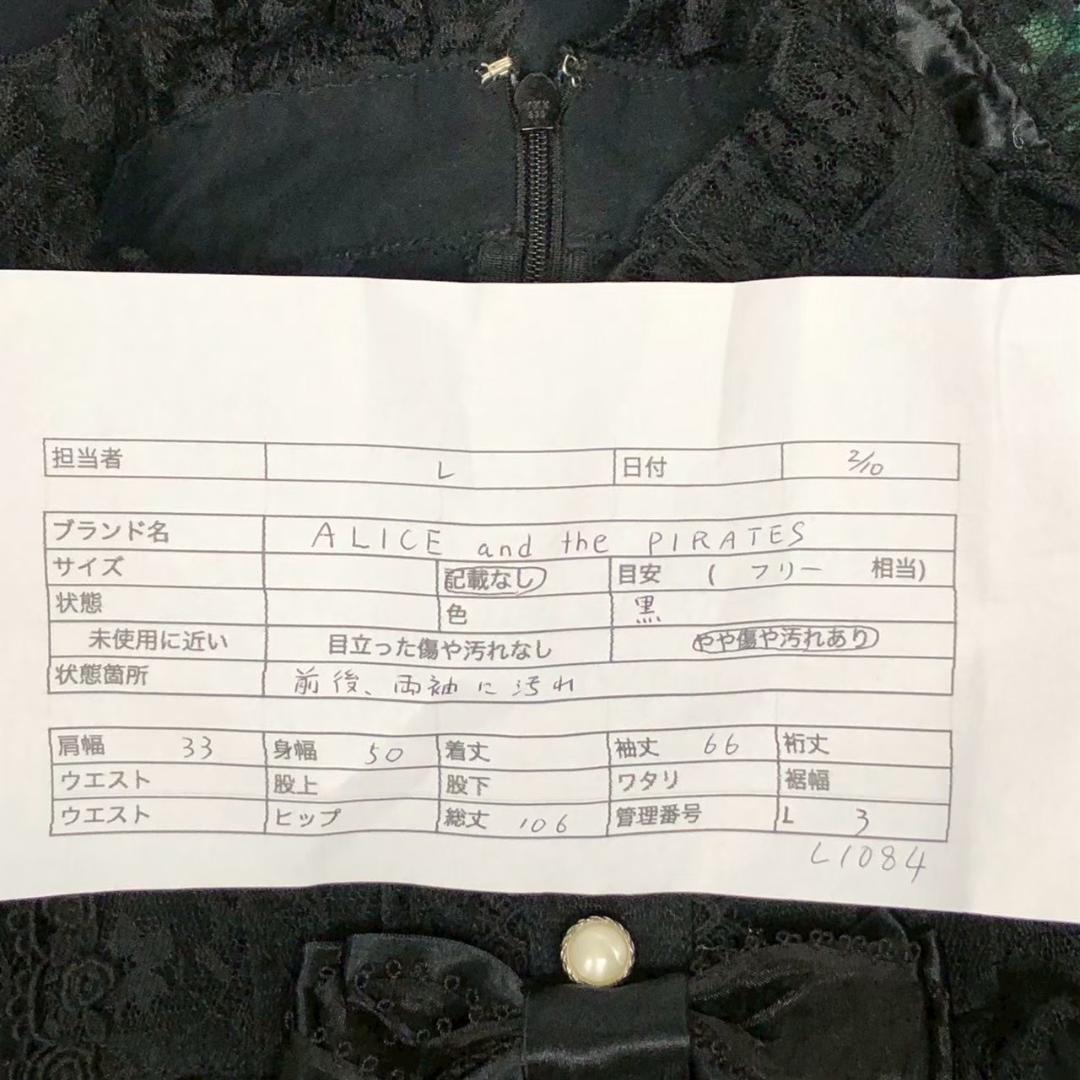 担当者 L 日付 2/10
ブランド名 ALICE and the PIRATES
サイズ 記載なし 目安 ( フリー 相当)
状態 色 黒
未使用に近い 目立った傷や汚れなし やや傷や汚れあり
状態箇所 前後、両袖に汚れ
肩幅 33 身幅 50 着丈 袖丈 66 裄丈
ウエスト 股上 股下 ワタリ 裾幅
ウエスト ヒップ 総丈 106 管理番号 L 3
L1084